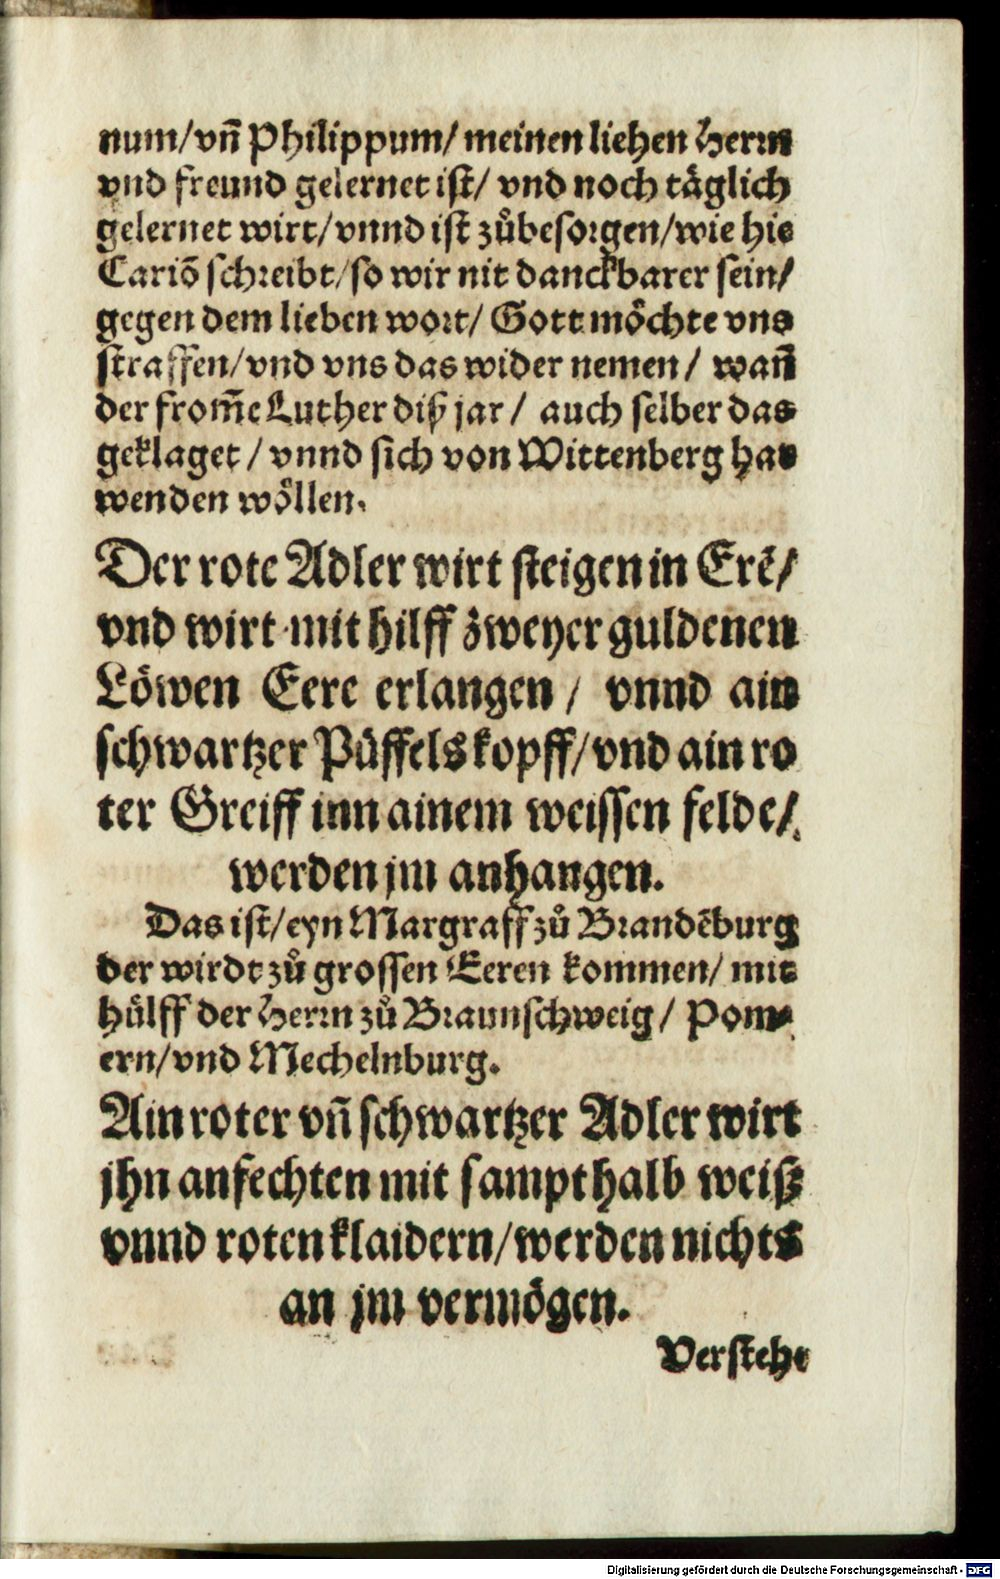 num/vñ Philippum/meinen liehen Herrn
vnd freund gelernet ist/ vnd noch täglich
gelernet wirt/vnnd ist zůbesorgen/wie hie
Cariō schreibt/so wir nit danckbarer sein/
gegen dem lieben wort/ Gott möchte vns
straffen/vnd vns das wider nemen/ wañ
der from̃e Luther diß jar/ auch selber das
geklaget/vnnd sich von Wittenberg hat
wenden wöllen.
Der rote Adler wirt steigen in Erē/
vnd wirt mit hilff zweyer guldenen
Löwen Eere erlangen/ vnnd ain
schwartzer Püffelskopff/vnd ain ro
ter Greiff inn ainem weissen felde/
werden jm anhangen.
Das ist/eyn Margraff zů Brandēburg
der wirdt zů grossen Eeren kommen/ mit
hülff der Herrn zů Braunschweig/ Pom-
ern/vnd Mechelnburg.
Ain roter vñ schwartzer Adler wirt
jhn anfechten mit sampt halb weiß
vnnd roten klaidern/werden nichts
an jm vermögen.
Verstehe
Digitalisierung gefördert durch die Deutsche Forschungsgemeinschaft - DFG